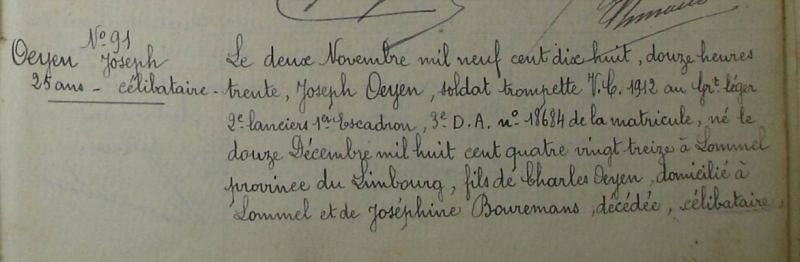 Nº 91
Oeyen Joseph
25 ans - célibataire -
Le deux Novembre mil neuf cent dix huit, douze heures
trente, Joseph Oeyen, soldat trompette V.C. 1912 au Grt. léger
2e lanciers 1er Escadron, 3e D.A. nº 18684 de la matricule, né le
douze Décembre mil huit cent quatre vingt treize à Lommel
province du Limbourg, fils de Charles Oeyen, domicilié à
Lommel et de Joséphine Bouremans, décédée, célibataire,